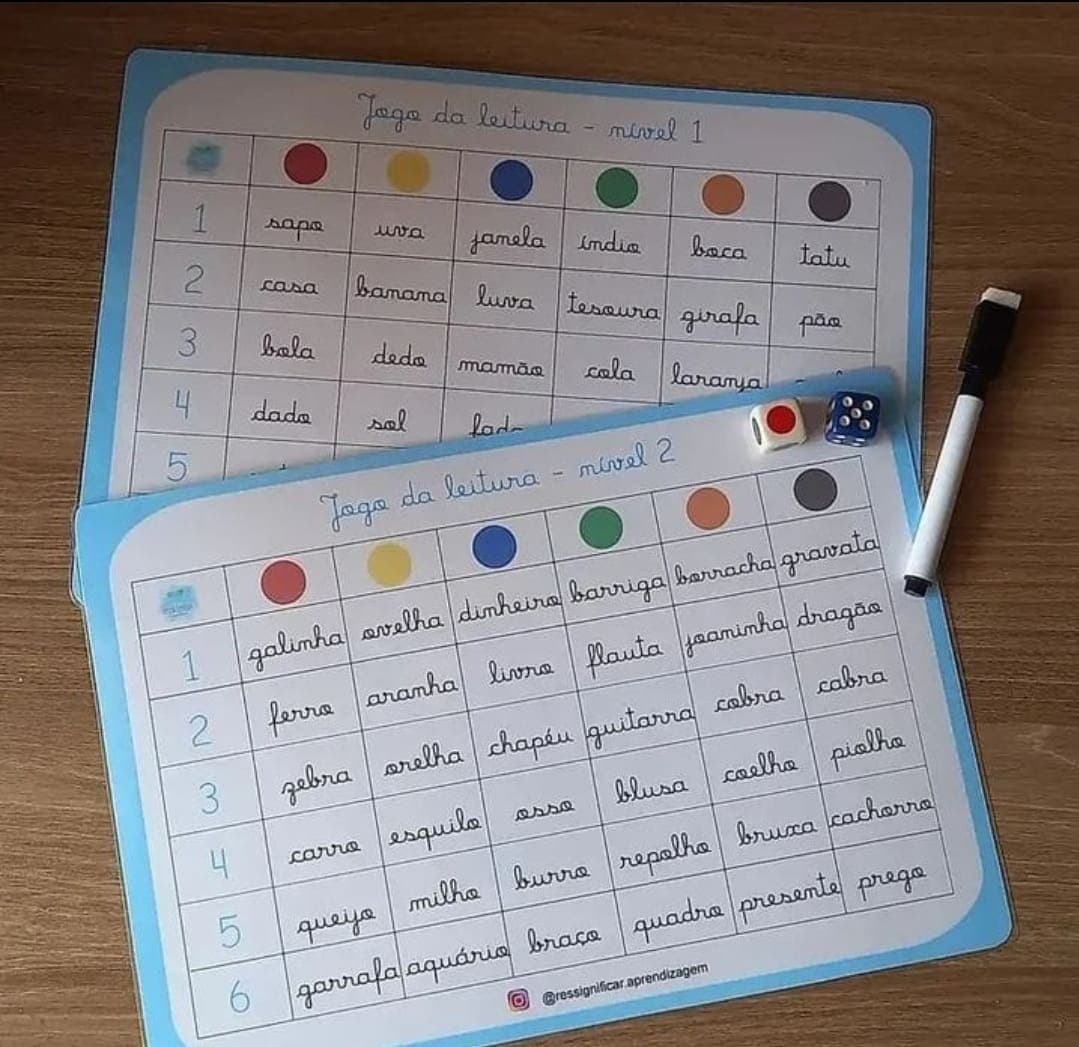 Jogo da leitura - nível 1
1 sapo uva janela índio boca tatu
2 casa banana luva tesoura girafa pão
3 bola dedo mamão cola laranja
4 dado sol
5
Jogo da leitura - nível 2
1 galinha ovelha dinheiro barriga borracha gravata
2 ferro aranha livro flauta joaninha dragão
3 zebra orelha chapéu guitarra cobra cabra
4 carro esquilo osso blusa coelho piolho
5 queijo milho burro repolho bruxa cachorro
6 garrafa aquário braço quadro presente prego
@ressignificar.aprendizagem